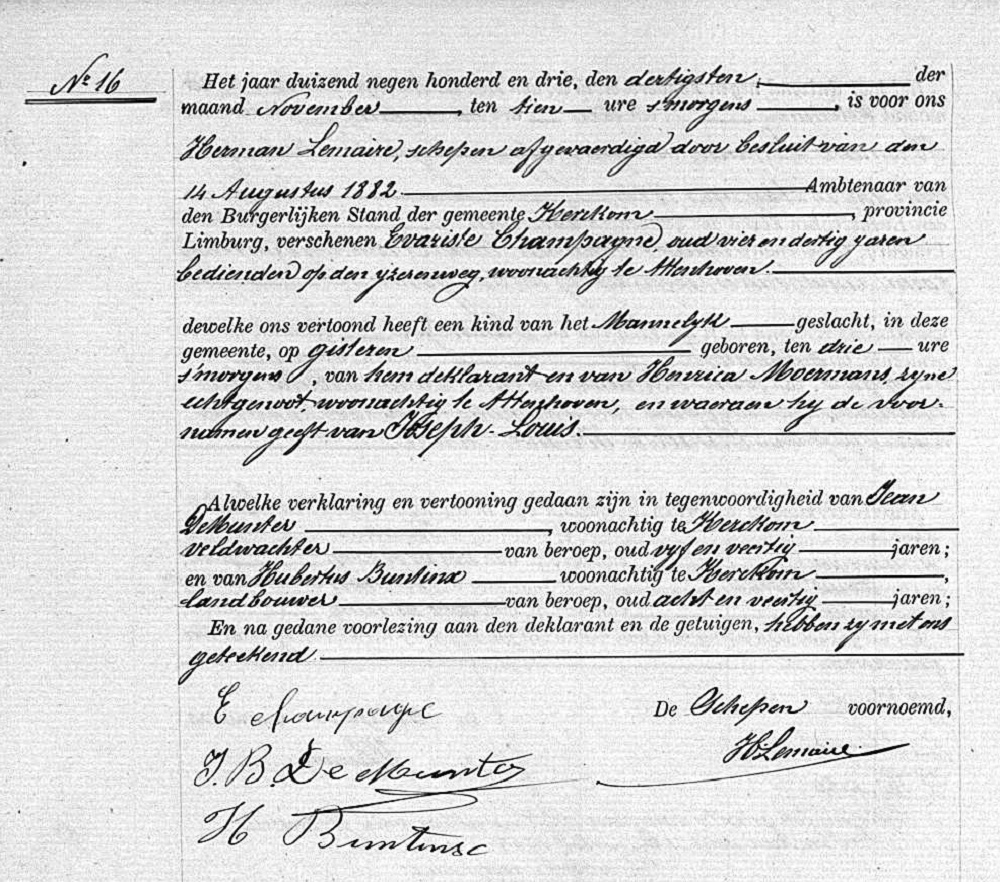 Nr 16
Het jaar duizend negen honderd en drie, den dertigsten, der
maand November, ten tien ure s'morgens, is voor ons
Herman Lemaire, schepen afgevaerdigd door besluit van den
14 Augustus 1882 Ambtenaar van
den Burgerlijken Stand der gemeente Kerckom, provincie
Limburg, verschenen Evariste Champagne, oud vier en dertig jaren
bedienden op den yzerenweg, woonachtig te Attenhoven.
dewelke ons vertoond heeft een kind van het Mannelyk geslacht, in deze
gemeente, op gisteren geboren, ten drie ure
s'morgens, van hem deklarant en van Henrica Moermans, zyne
echtgenoot, woonachtig te Attenhoven, en waeraen hy de voor-
namen geeft van Joseph-Louis.
Alwelke verklaring en vertooning gedaan zijn in tegenwoordigheid van Jean
DeMunter, woonachtig te Kerckom
veldwachter van beroep, oud vyf en veertig jaren;
en van Hubertus Buntinx woonachtig te Kerckom,
landbouwer van beroep, oud acht en veertig jaren;
En na gedane voorlezing aan den deklarant en de getuigen, hebben zy met ons
geteekend.
E champagne
De Schepen voornoemd,
H Lemaire
J. B. De Munter
H Buntinx